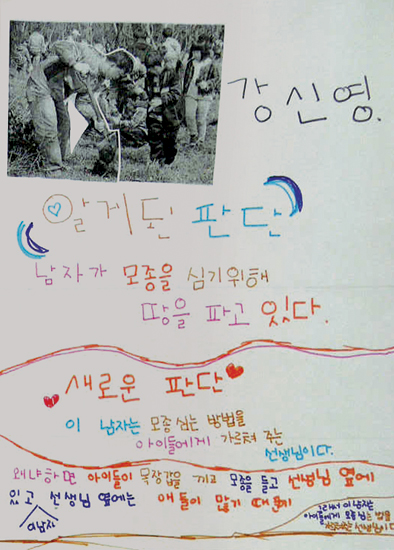 강신영.
알게된 판단
남자가 모종을 심기위해
땅을 파고 있다.
새로운 판단
이 남자는 모종 심는 방법을
아이들에게 가르쳐 주는
선생님이다.
왜냐하면 아이들이 목장갑을 끼고 모종을 들고 선생님 옆에
있고 선생님 옆에는 애들이 많기 때문에
이남자
그래서 이 남자는
아이들에게 모종 심는 법을
선생님이다